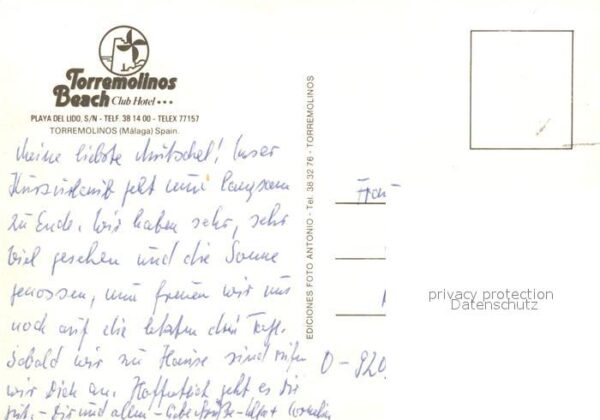 Torremolinos
Beach Club Hotel ●●●
PLAYA DEL LIDO. S/N - TELF. 38 14 00 - TELEX 77157
TORREMOLINOS (Málaga) Spain.
Meine liebste Mutschel! Unser
Kurzurlaub geht nun langsam
zu Ende. Wir haben sehr, sehr
viel gesehen und die Sonne
genossen, nun freuen wir uns
noch auf die letzten drei Tage.
Sobald wir zu Hause sind rufen
wir Dich an. Hoffentlich geht es Dir
gut. Dir und allen liebe Grüße
EDICIONES FOTO ANTONIO - Tel. 38 32 76 - TORREMOLINOS
Frau
D-820
privacy protection
Datenschutz